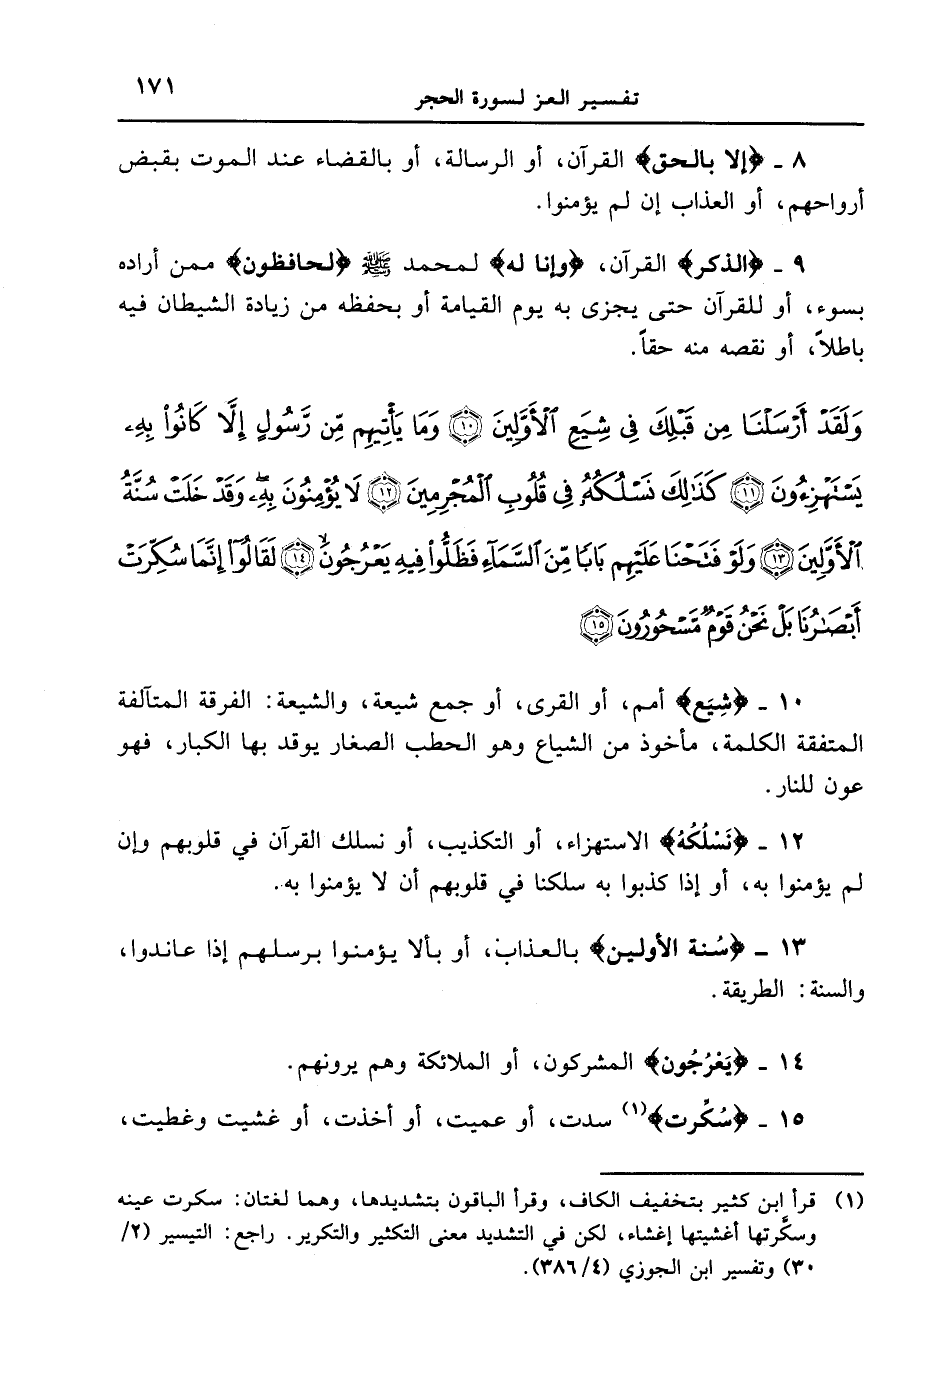 تفسير العز لسورة الحجر
١٧١
٨ ـ ﴿إلا بالحق﴾ القرآن، أو الرسالة، أو بالقضاء عند الموت بقبض
أرواحهم، أو العذاب إن لم يؤمنوا.
٩ ـ ﴿الذكر﴾ القرآن، ﴿وإنا له﴾ لمحمد ﷺ ﴿لحافظون﴾ ممن أراده
بسوء، أو للقرآن حتى يجزى به يوم القيامة أو بحفظه من زيادة الشيطان فيه
باطلاً، أو نقصه منه حقاً.
وَلَقَدْ أَرْسَلْنَا مِن قَبْلِكَ فِى شِيَعِ ٱلْأَوَّلِينَ ١٠ وَمَا يَأْتِيهِم مِّن رَّسُولٍ إِلَّا كَانُوا۟ بِهِۦ
يَسْتَهْزِءُونَ ١١ كَذَٰلِكَ نَسْلُكُهُۥ فِى قُلُوبِ ٱلْمُجْرِمِينَ ١٢ لَا يُؤْمِنُونَ بِهِۦۖ وَقَدْ خَلَتْ سُنَّةُ
ٱلْأَوَّلِينَ ١٣ وَلَوْ فَتَحْنَا عَلَيْهِم بَابًا مِّنَ ٱلسَّمَآءِ فَظَلُّوا۟ فِيهِ يَعْرُجُونَ ١٤ لَقَالُوٓا۟ إِنَّمَا سُكِّرَتْ
أَبْصَٰرُنَا بَلْ نَحْنُ قَوْمٌ مَّسْحُورُونَ ١٥
١٠ ـ ﴿شِيَع﴾ أمم، أو القرى، أو جمع شيعة، والشيعة: الفرقة المتآلفة
المتفقة الكلمة، مأخوذ من الشياع وهو الحطب الصغار يوقد بها الكبار، فهو
عون للنار.
١٢ ـ ﴿نَسْلُكُهُ﴾ الاستهزاء، أو التكذيب، أو نسلك القرآن في قلوبهم وإن
لم يؤمنوا به، أو إذا كذبوا به سلكنا في قلوبهم أن لا يؤمنوا به.
١٣ ـ ﴿سُنة الأولين﴾ بالعذاب، أو بألا يؤمنوا برسلهم إذا عاندوا،
والسنة: الطريقة.
١٤ ـ ﴿يَعْرُجُون﴾ المشركون، أو الملائكة وهم يرونهم.
١٥ ـ ﴿سُكِّرت﴾(١) سدت، أو عميت، أو أخذت، أو غشيت وغطيت،
(١) قرأ ابن كثير بتخفيف الكاف، وقرأ الباقون بتشديدها، وهما لغتان: سكرت عينه
وسكَّرتها أغشيتها إغشاء، لكن في التشديد معنى التكثير والتكرير. راجع: التيسير (٢/
٣٠) وتفسير ابن الجوزي (٣٨٦/٤).